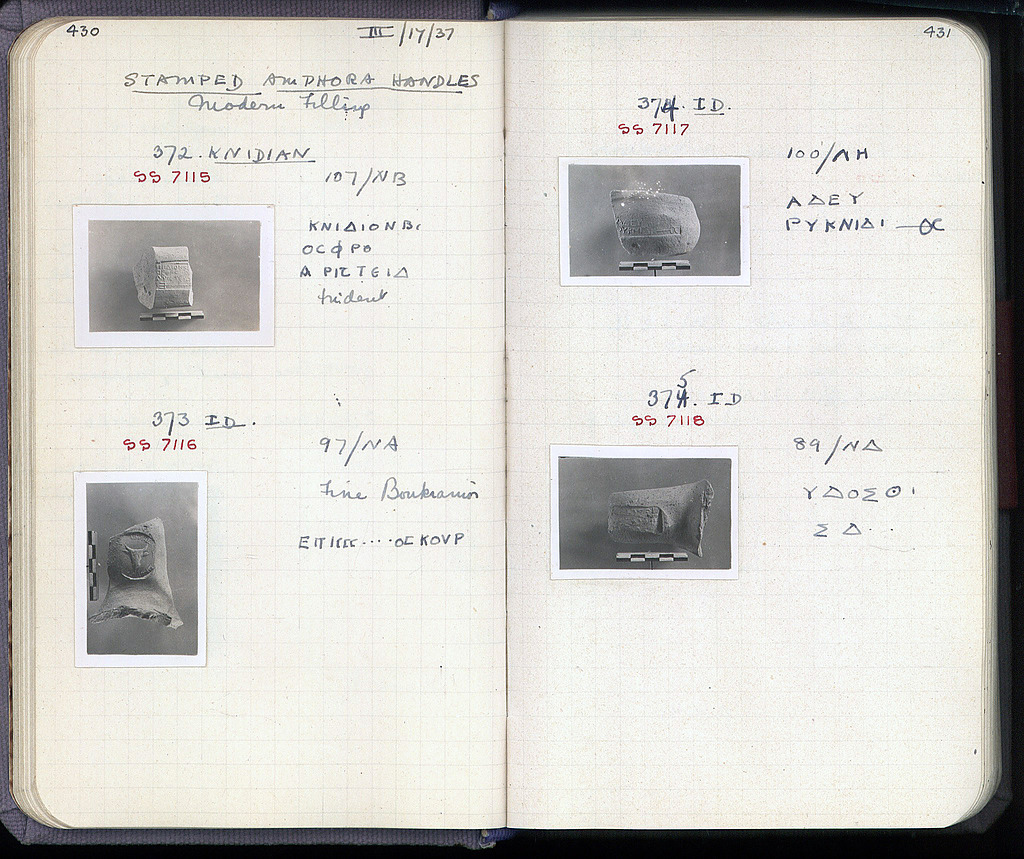 430
III/17/37
STAMPED AMPHORA HANDLES
Modern Filling
372. KNIDIAN
SS 7115
107/ΝΒ
ΚΝΙΔΙΟΝΒΙ
ΟCΦΡΟ
ΑΡΙCΤΕΙΔ
trident
373 ID.
SS 7116
97/ΝΑ
Fine Boukranion
ΟCΚΟΥΡ
431
374. ID.
SS 7117
100/ΛΗ
ΑΔΕΥ
ΡΥΚΝΙΔΙ
375. ID
SS 7118
89/ΝΔ
ΥΔΟΣΘΙ
ΣΔ..